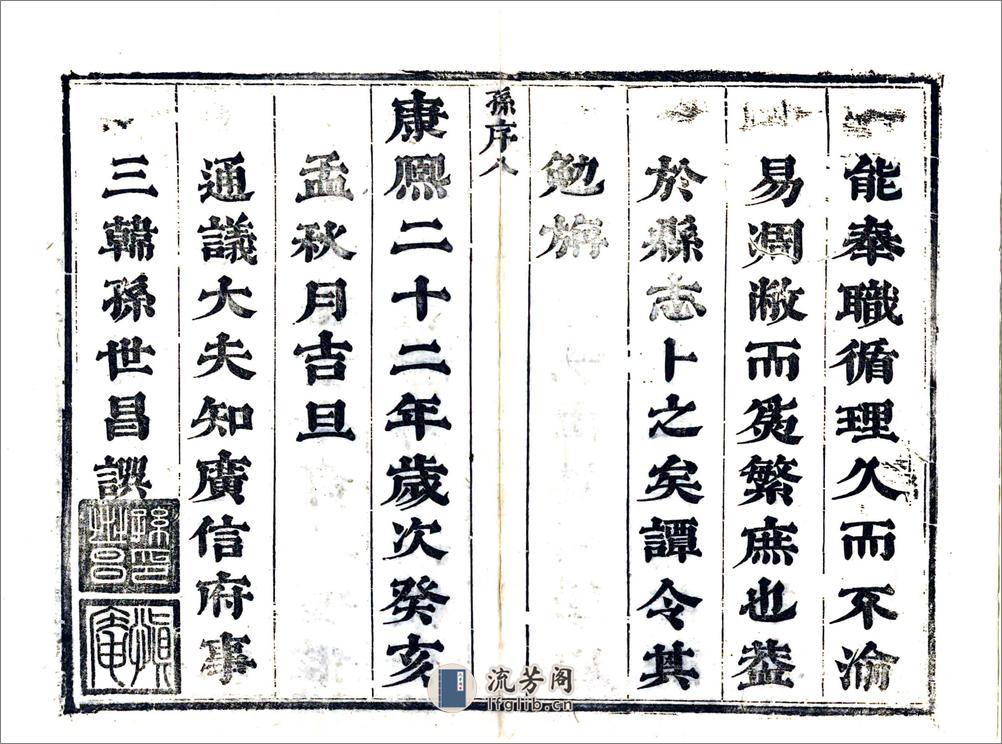 能奉職循理久而不渝
易凋敝而為繁庶也蓋
於縣志卜之矣譚令其
勉旃
孫序八
康熙二十二年歲次癸亥
孟秋月吉旦
通議大夫知廣信府事
三韓孫世昌譔
孫世昌印
流芳阁
lfglib.cn